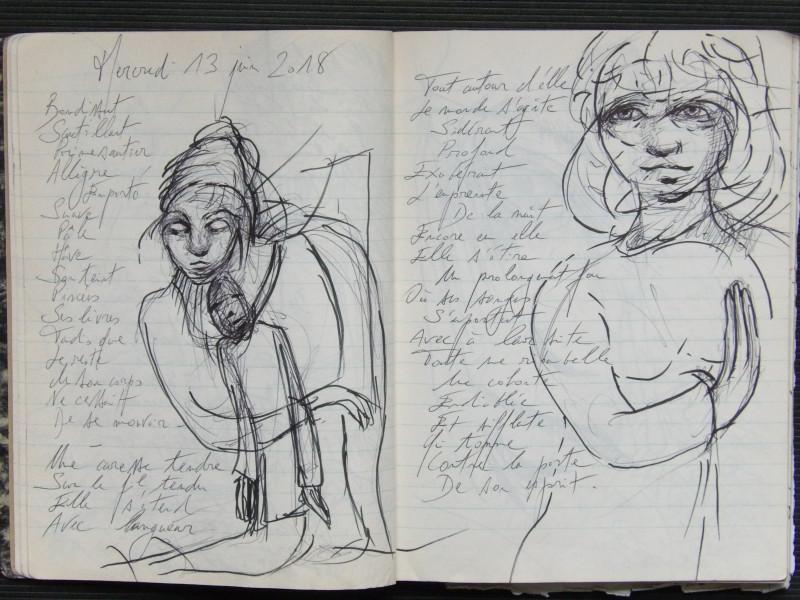 Mercredi 13 juin 2018
Bondissant
Sautillant
Primesautier
Allègre
Emporté
Suave
Pâle
Hâve
Ses livres
Tandis que
Le reste
de son corps
Ne cessait
De se mouvoir
Une caresse tendre
Sur le fil tendu
Elle s'étend
Avec langueur
Tout autour d'elle
Le monde s'agite
Sidérant
Profond
Exubérant
L'empreinte
De la nuit
Encore en elle
Elle s'étire
Un prolongement
Où ses songes
Avec
Toute une ribambelle
Une cohorte
Endiablée
Et
Qui tonne
Contre la porte
De son esprit.